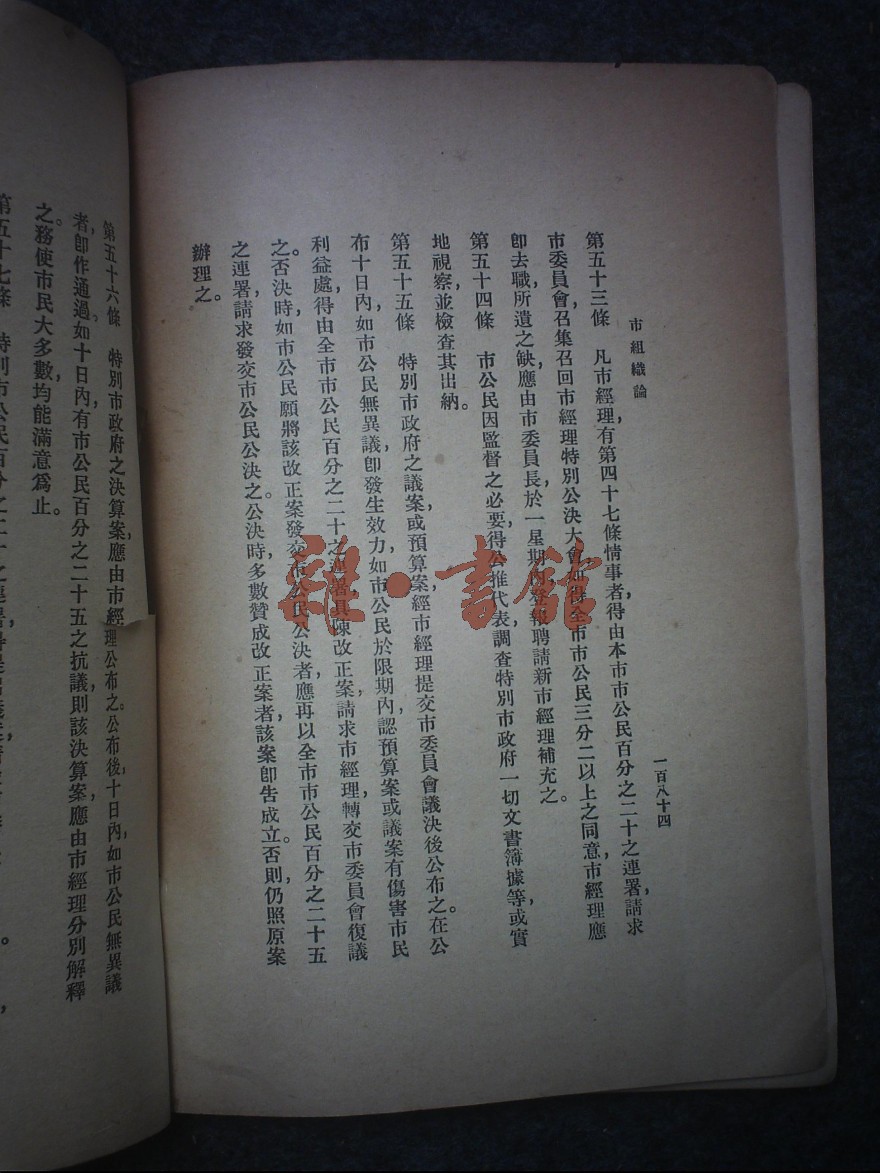 市組織論
一百八十四
第五十三條　凡市經理有第四十七條情事者，得由本市市公民百分之二十之連署，請求
市委員會召集召回市經理特別公決大會如得全市市公民三分二以上之同意，市經理應
即去職所遺之缺，應由市委員長於一星期內登報聘請新市經理補充之。
第五十四條　市公民因監督之必要，得公推代表，調查特別市政府一切文書簿據等，或實
地視察，並檢查其出納。
第五十五條　特別市政府之議案或預算案，經市經理提交市委員會議決後公布之。在公
布十日內，如市公民無異議，即發生效力，如市公民於限期內，認預算案或議案有傷害市民
利益處，得由全市市公民百分之二十之連署，具陳改正案，請求市經理，轉交市委員會復議
之。否決時，如市公民願將該改正案發交市公民公決者，應再以全市市公民百分之二十五
之連署，請求發交市公民公決之。公決時，多數贊成改正案者，該案即告成立。否則，仍照原案
辦理之。
第五十六條　特別市政府之決算案，應由市經理公布之。公布後，十日內，如市公民無異議
者，即作通過。如十日內，有市公民百分之二十五之抗議，則該決算案，應由市經理分別解釋
之，務使市民大多數均能滿意爲止。
第五十七條　特別市公民百分之二十之連署
雜·書館